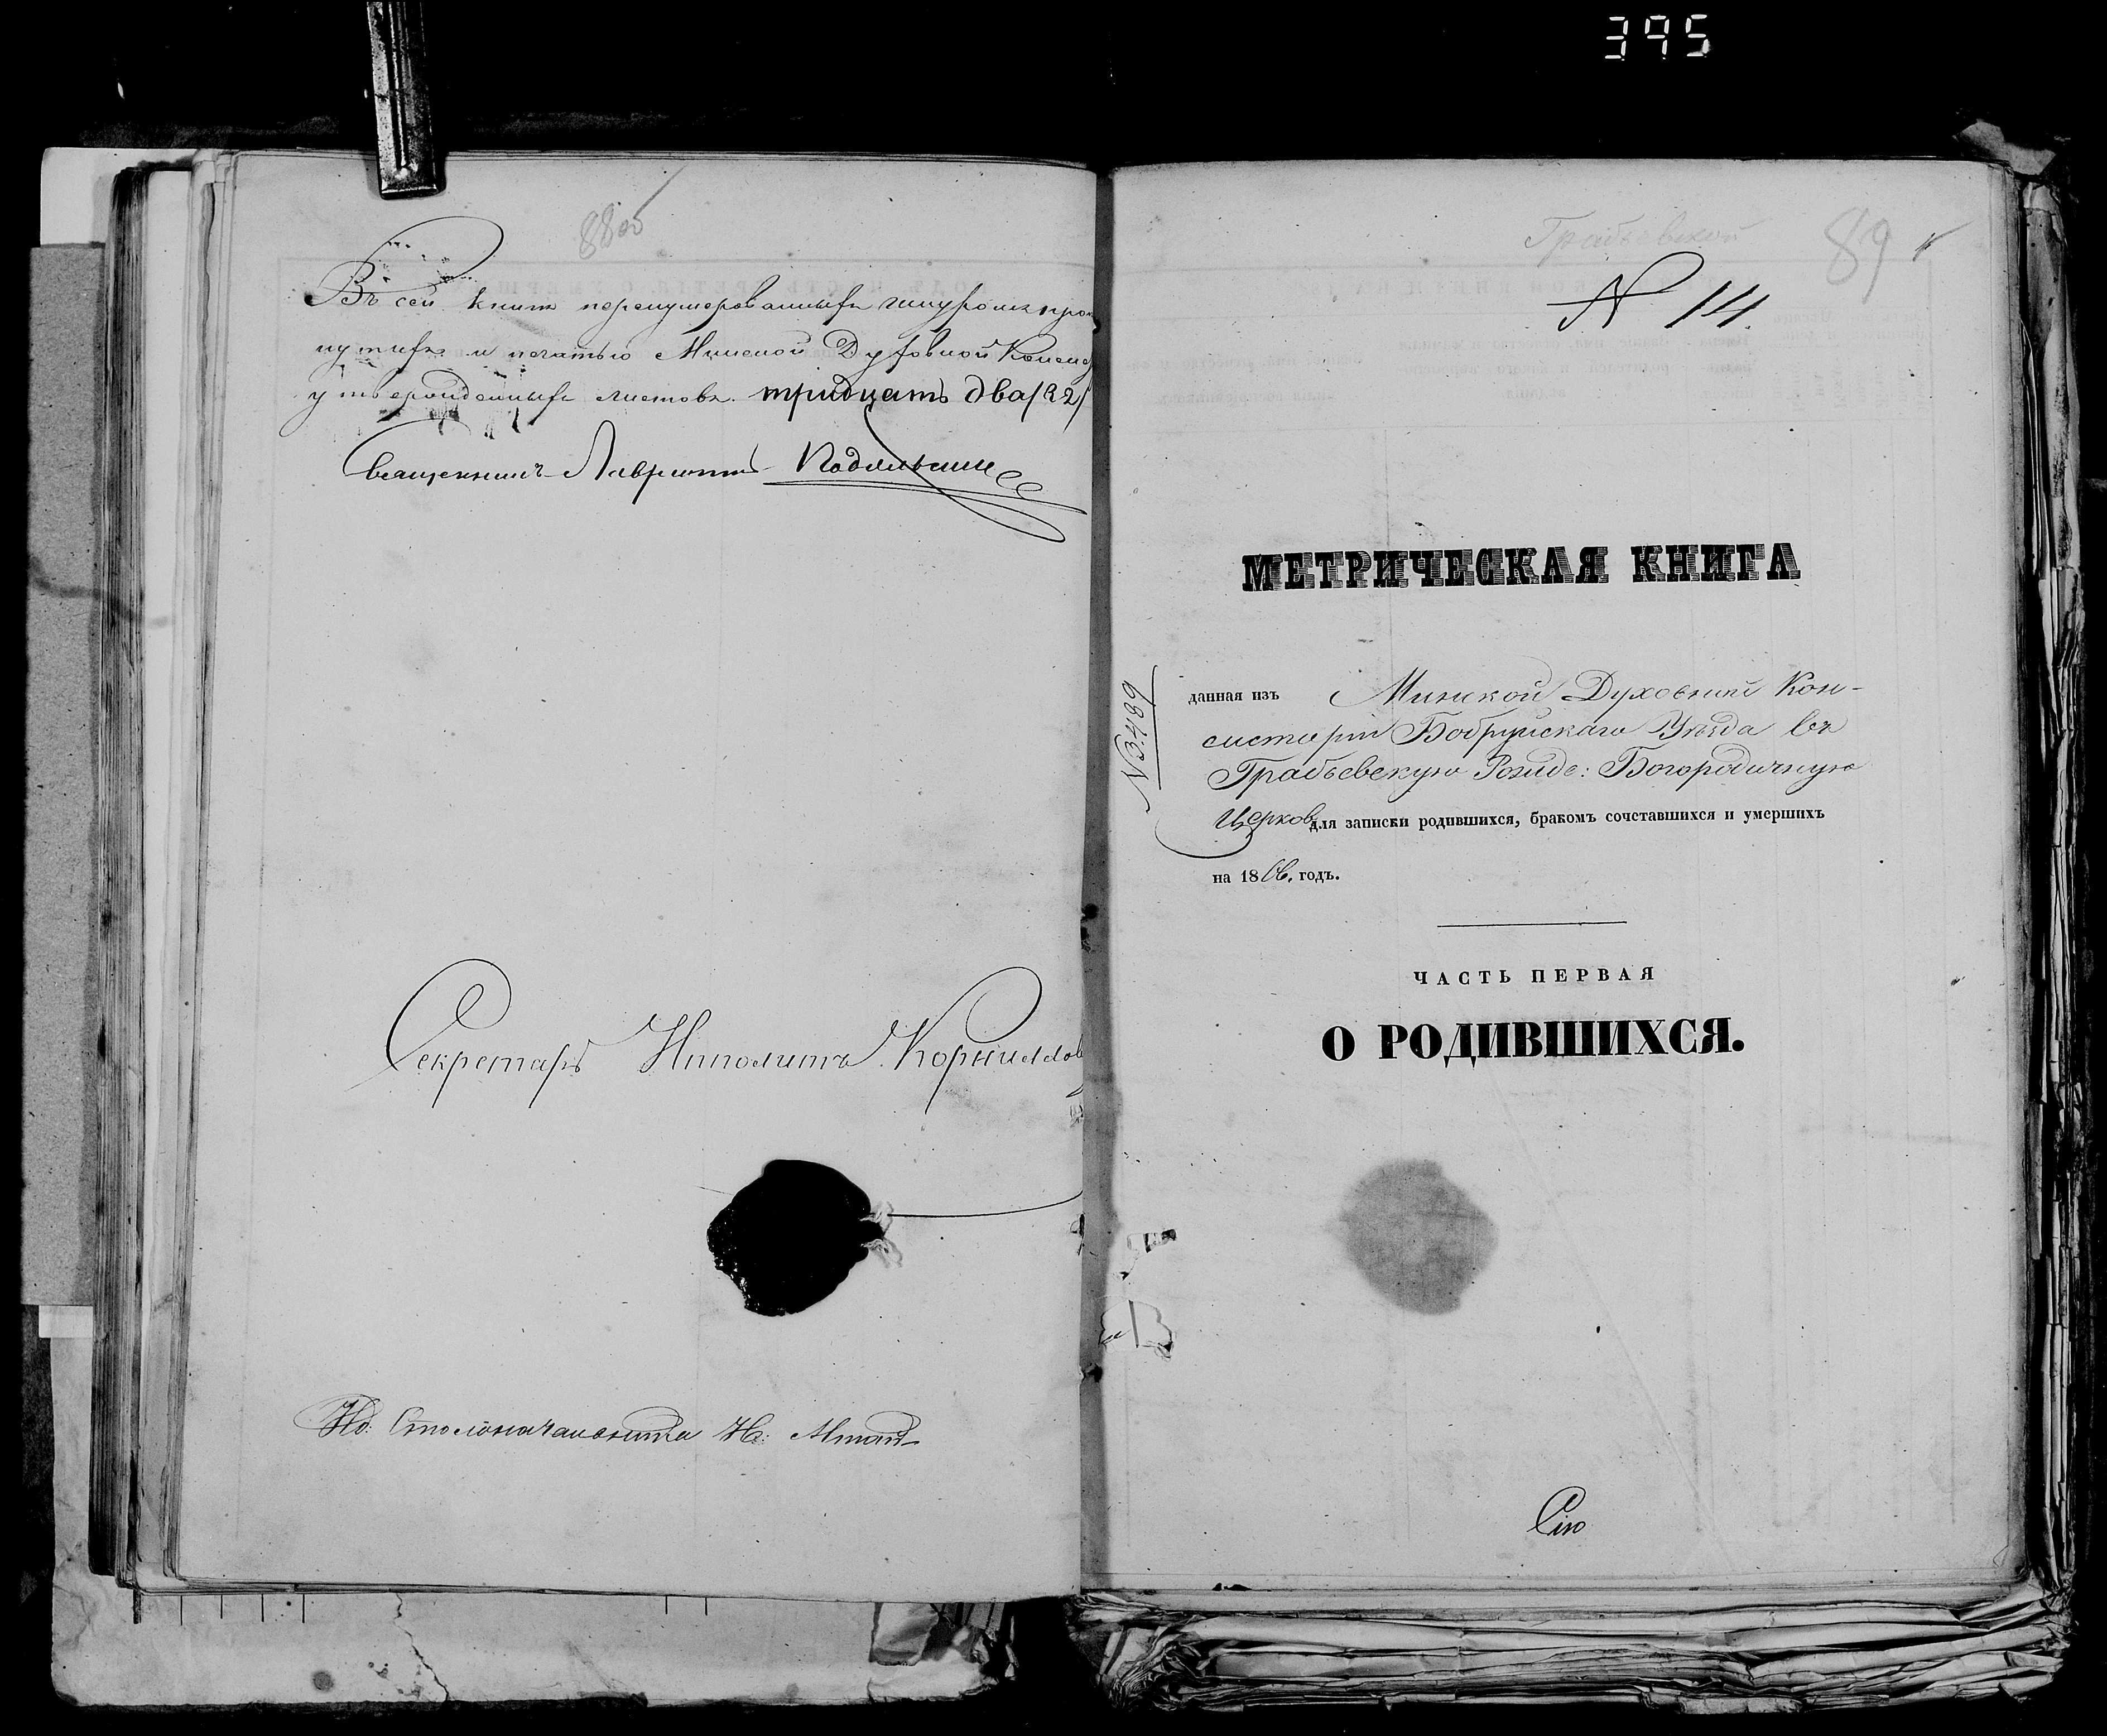 395
88об
Въ сей книгѣ перенумерованныхъ шнуромъ про
нутыхъ и печатью Минской Духовной Консис
утвержденныхъ листовъ тридцать два /32/
Священникъ Лаврентій
Секретарь Ипполитъ Корниллов
Столоначальника
Грабьевской
89
N 14.
МЕТРИЧЕСКАЯ КНИГА
N 3489
данная изъ Минской Духовной Кон-
систоріи Бобруйскаго Уѣзда въ
Грабьевскую Рожде: Богородичную
Церковь для записки родившихся, бракомъ сочетавшихся и умершихъ
на 1866. годъ.
ЧАСТЬ ПЕРВАЯ
О РОДИВШИХСЯ.
Сію